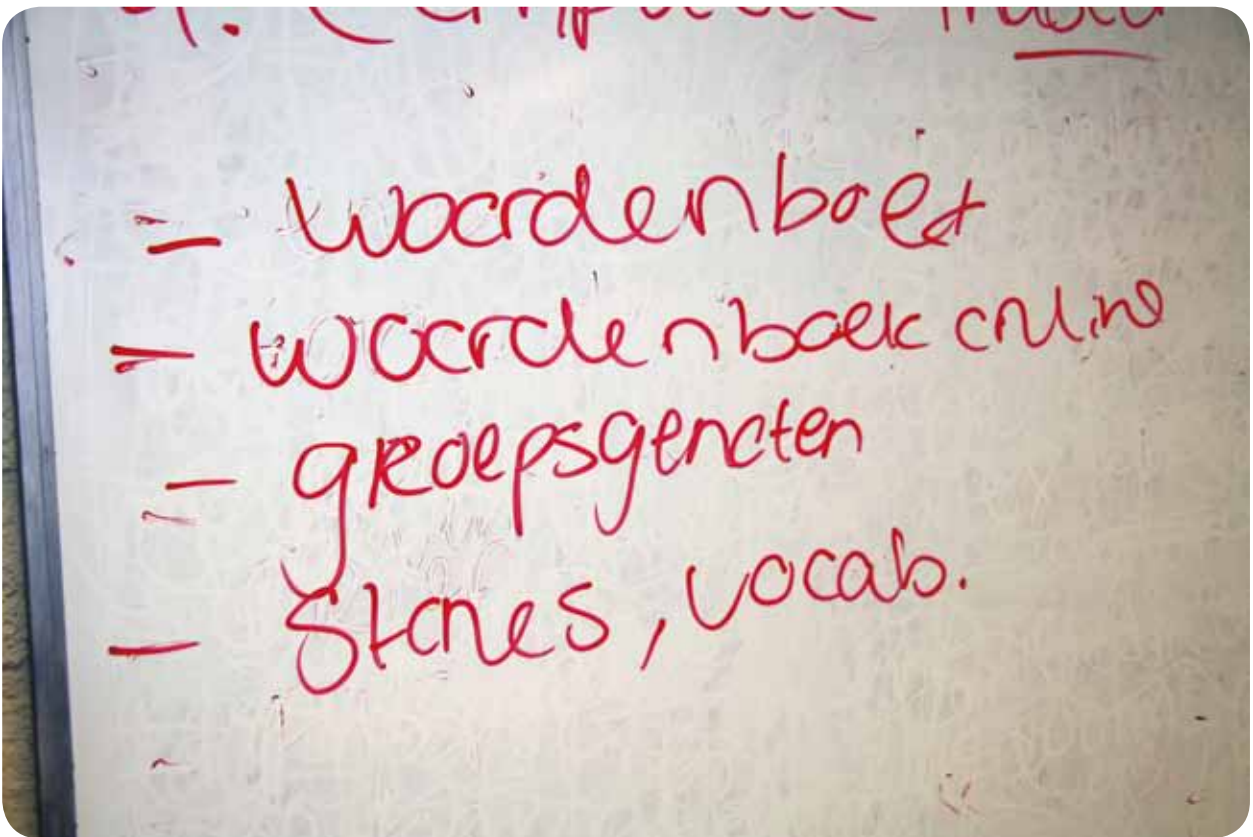 - woordenboek
- woordenboek online
- groepsgenoten
- Stones, vocab.